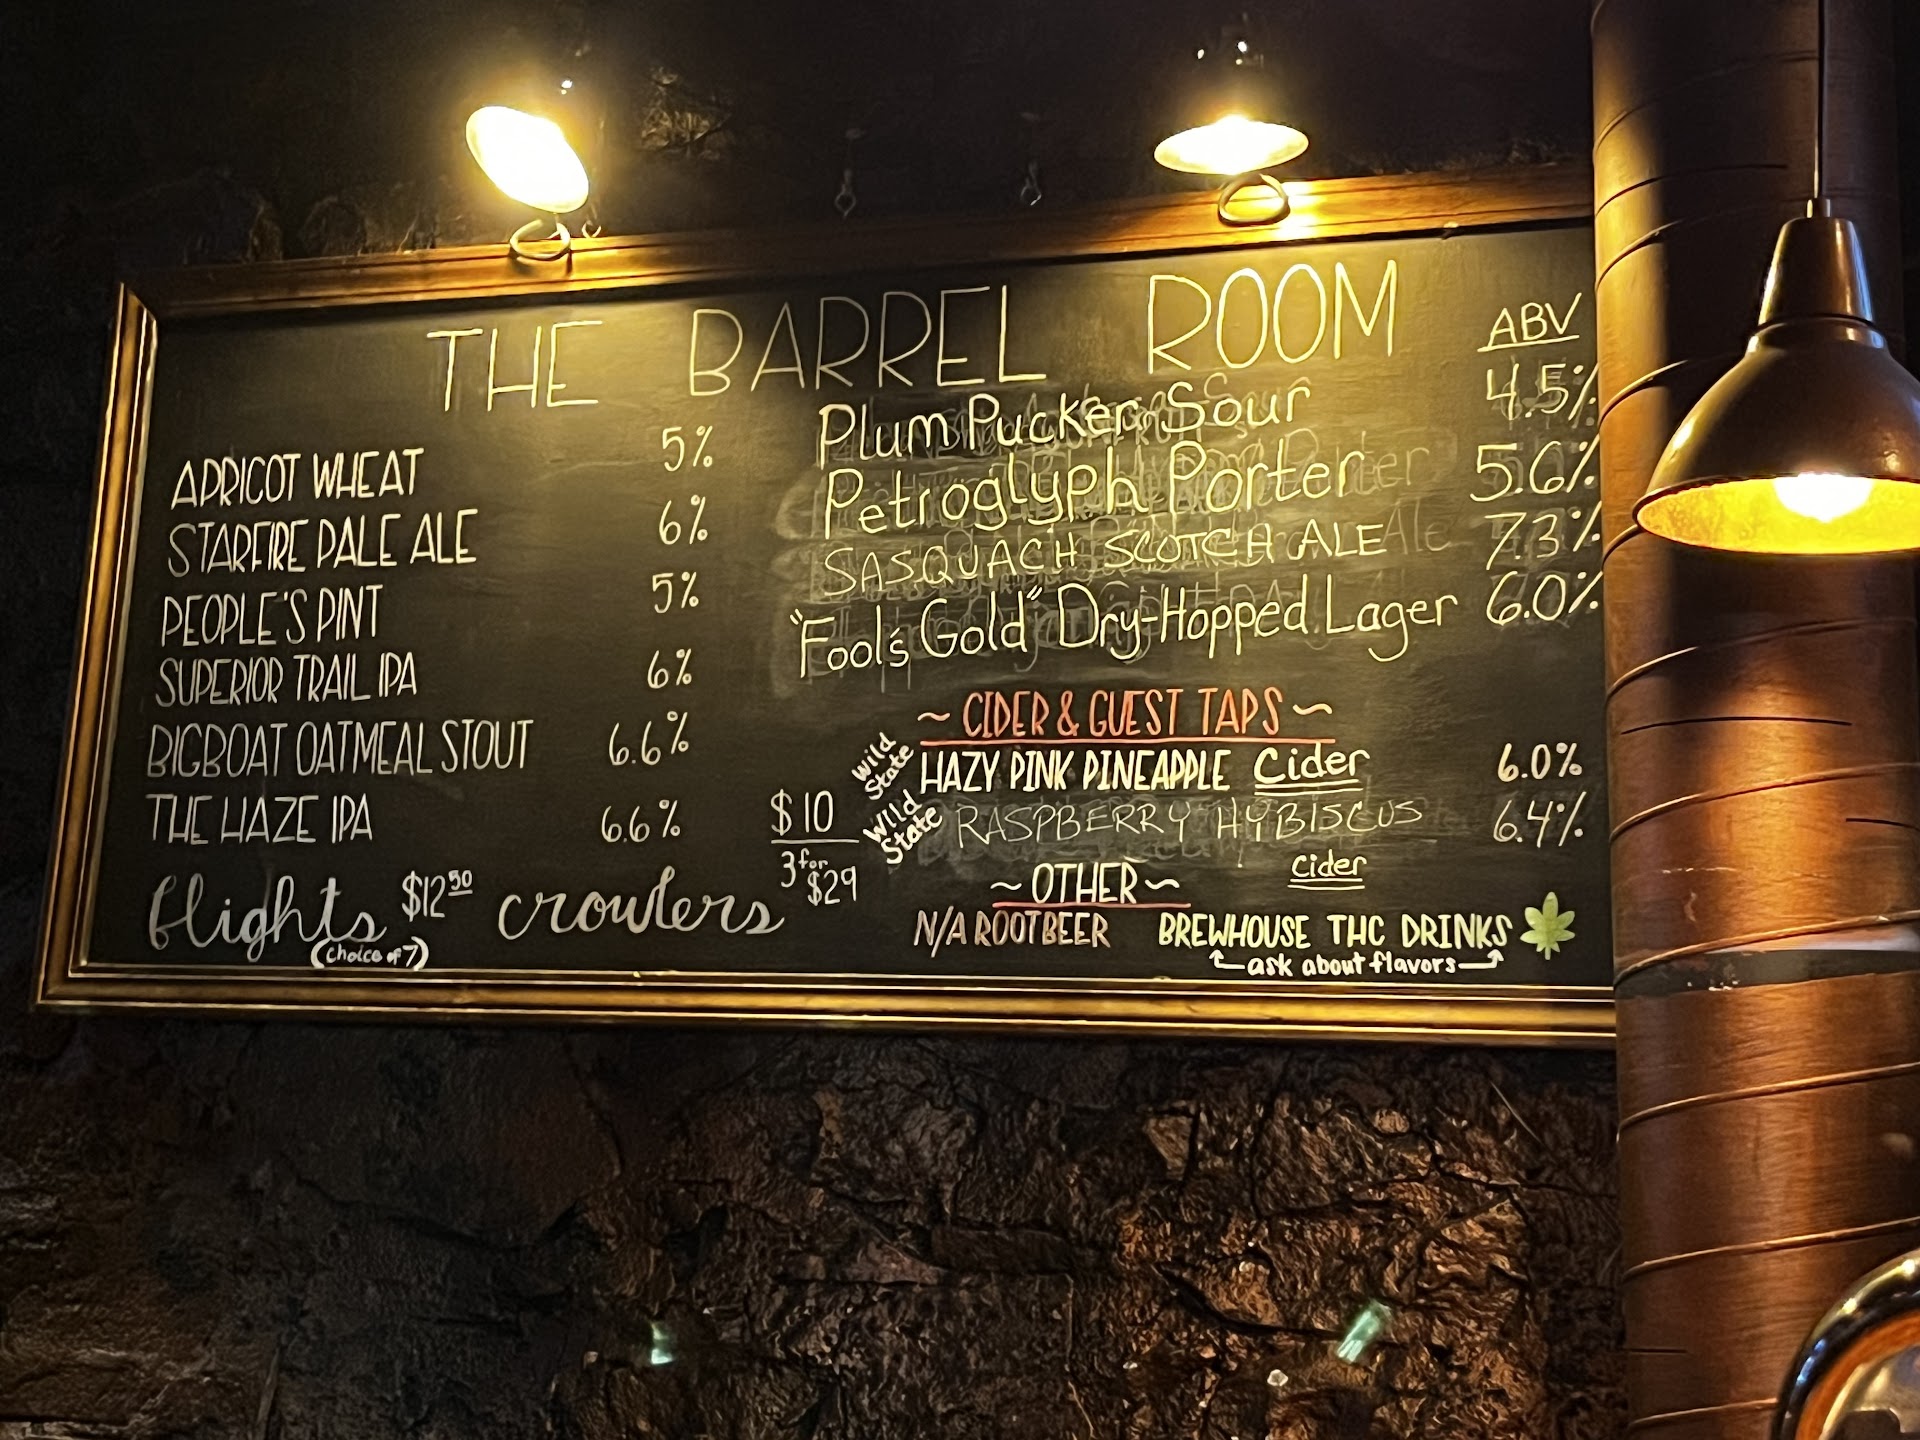 THE BARREL ROOM
APRICOT WHEAT 5%
STARFIRE PALE ALE 6%
PEOPLE'S PINT 5%
SUPERIOR TRAIL IPA 6%
BIGBOAT OATMEAL STOUT 6.6%
THE HAZE IPA 6.6%
flights $12 50 crowlers $10
(choice of 7)
3 for $29
ABV
Plum Pucker Sour 4.5%
Petroglyph Porter 5.6%
SASQUACH SCOTCH ALE 7.3%
"Fool's Gold" Dry-Hopped Lager 6.0%
~ CIDER & GUEST TAPS ~
Wild State HAZY PINK PINEAPPLE Cider 6.0%
Wild State RASPBERRY HYBISCUS 6.4%
Cider
~ OTHER ~
N/A ROOTBEER BREWHOUSE THC DRINKS
ask about flavors